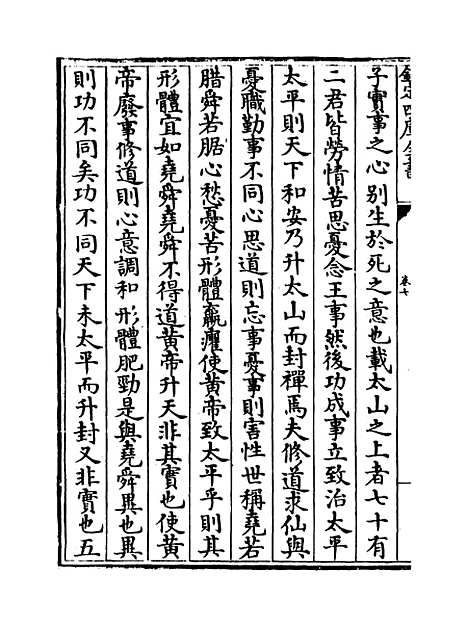 欽定四庫全書
卷七
子實事之心别生於死之意也載太山之上者七十有
二君皆勞情苦思憂念王事然後功成事立致治太平
太平則天下和安乃升太山而封禪焉夫修道求仙與
憂職勤事不同心思道則忘事憂事則害性世稱堯若
腊舜若腒心愁憂苦形體羸癯使黄帝致太平乎則其
形體宜如堯舜堯舜不得道黄帝升天非其實也使黄
帝廢事修道則心意調和形體肥勁是與堯舜異也異
則功不同矣功不同天下未太平而升封又非實也五